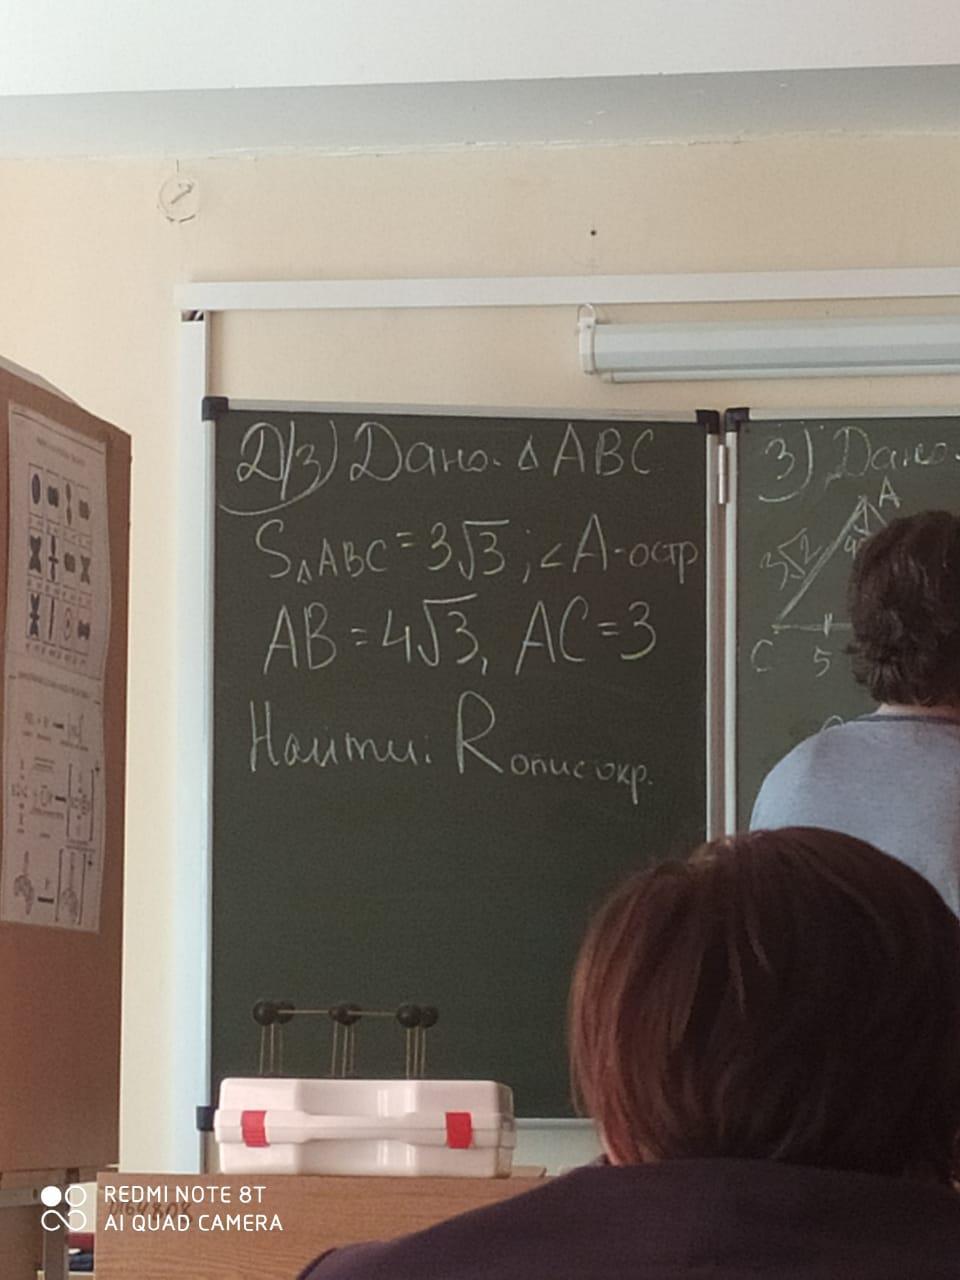 Д/з) Дано: △ ABC
S△ABC = 3√3 ; ∠A - остр
AB = 4√3, AC = 3
Найти: R опис окр.
3) Дано:
A
3√2
C
5
REDMI NOTE 8T
AI QUAD CAMERA